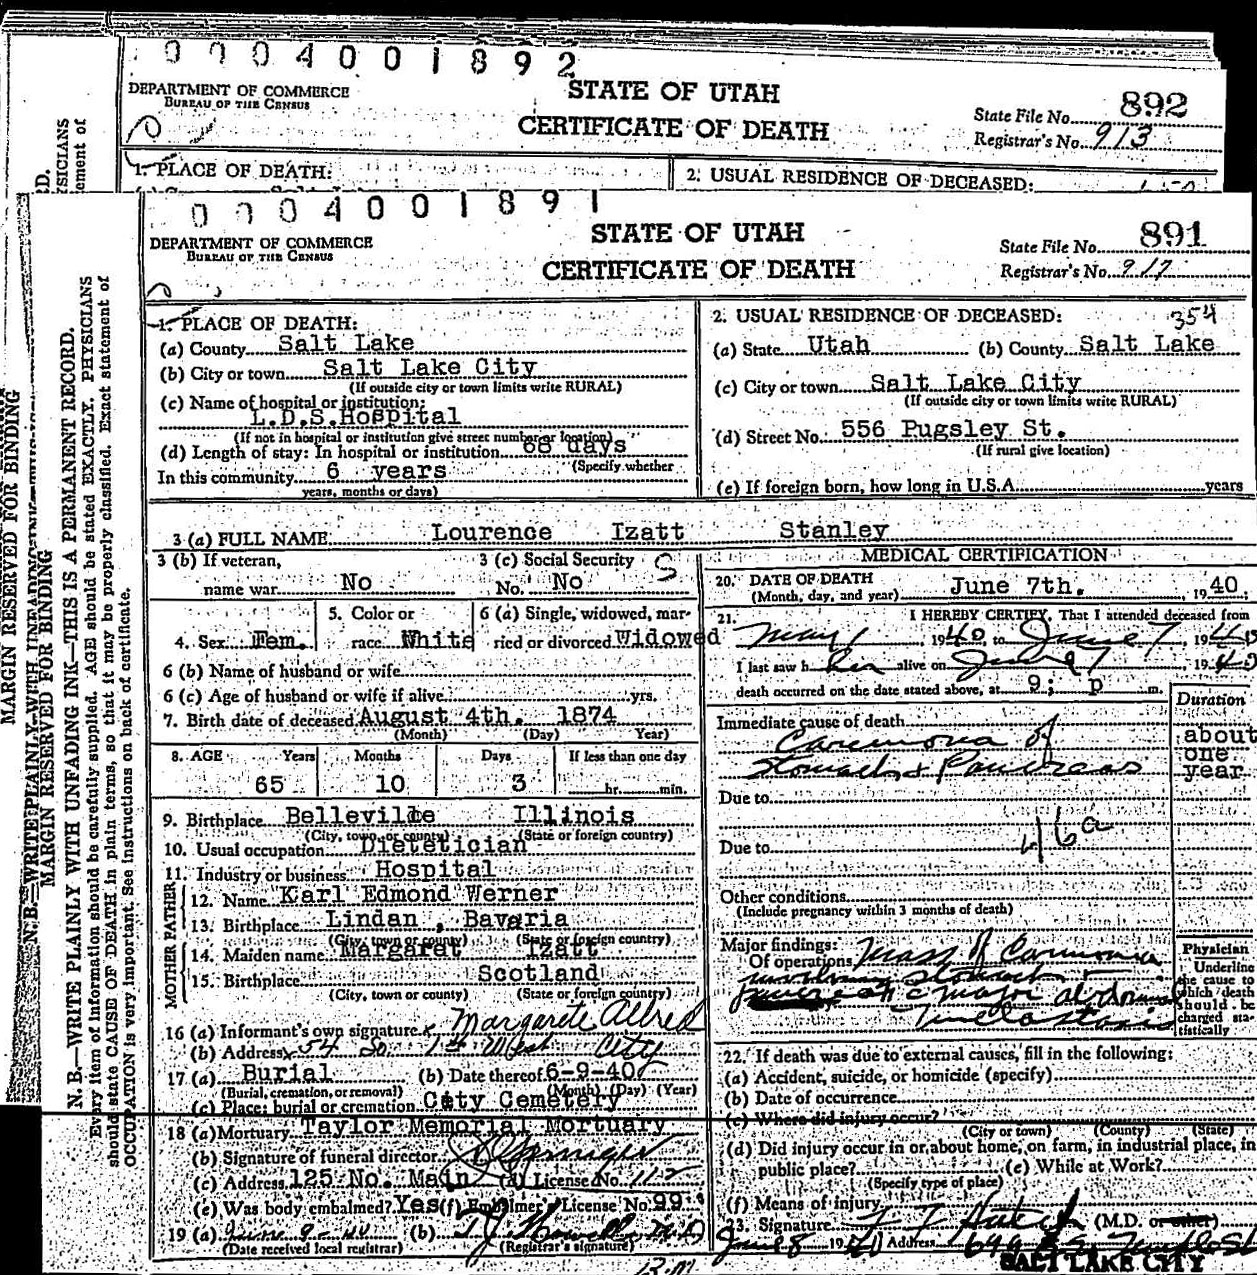 0004001892
DEPARTMENT OF COMMERCE
BUREAU OF THE CENSUS
STATE OF UTAH
CERTIFICATE OF DEATH
State File No. 892
Registrar's No. 913
1. PLACE OF DEATH:
2. USUAL RESIDENCE OF DECEASED:
0004001891
DEPARTMENT OF COMMERCE
BUREAU OF THE CENSUS
STATE OF UTAH
CERTIFICATE OF DEATH
State File No. 891
Registrar's No. 917
1. PLACE OF DEATH:
(a) County Salt Lake
(b) City or town Salt Lake City
(If outside city or town limits write RURAL)
(c) Name of hospital or institution:
L.D.S.Hospital
(If not in hospital or institution give street number or location)
(d) Length of stay: In hospital or institution 68 days
(Specify whether
In this community 6 years
years, months or days)
2. USUAL RESIDENCE OF DECEASED: 354
(a) State Utah (b) County Salt Lake
(c) City or town Salt Lake City
(If outside city or town limits write RURAL)
(d) Street No. 556 Pugsley St.
(If rural give location)
(e) If foreign born, how long in U.S.A. years
3 (a) FULL NAME Lourence Izatt Stanley
3 (b) If veteran,
name war No
3 (c) Social Security
No. No S
4. Sex Fem.
5. Color or
race White
6 (a) Single, widowed, mar-
ried or divorced Widowed
6 (b) Name of husband or wife
6 (c) Age of husband or wife if alive yrs.
7. Birth date of deceased August 4th. 1874
(Month) (Day) Year)
8. AGE Years Months Days If less than one day
65 10 3 hr. min.
9. Birthplace Belleville Illinois
(City, town, or county) (State or foreign country)
10. Usual occupation Dietetician
11. Industry or business Hospital
FATHER
12. Name Karl Edmond Werner
13. Birthplace Lindan , Bavaria
(City, town or county) (State or foreign country)
MOTHER
14. Maiden name Margaret Izatt
15. Birthplace Scotland
(City, town or county) (State or foreign country)
16 (a) Informant's own signature x Margarete Allred
(b) Address x 54 So. 1st West City
17 (a) Burial (b) Date thereof 6-9-40
(Burial, cremation, or removal) (Month) (Day) (Year)
(c) Place: burial or cremation City Cemetery
18 (a) Mortuary Taylor Memorial Mortuary
(b) Signature of funeral director
(c) Address 125 No. Main (d) License No. 112
(e) Was body embalmed? Yes (f) Embalmer's License No. 99
19 (a) June 9-40 (b) M.D
(Date received local registrar) (Registrar's signature)
MEDICAL CERTIFICATION
20. DATE OF DEATH June 7th. , 1940
(Month, day, and year)
21. I HEREBY CERTIFY, That I attended deceased from
May 1 1940 to June 7 1940
I last saw her alive on June 7, 1940
death occurred on the date stated above, at 9; p m.
Duration
Immediate cause of death
Carcinoma of
Stomach & Pancreas
about
one
year
Due to
Due to 46a
Other conditions
(Include pregnancy within 3 months of death)
Major findings:
Of operations Mass of Carcinoma
involving stomach &
pancreas c major abdominal
metastasis
Physician
Underline
the cause to
which death
should be
charged sta-
tistically
22. If death was due to external causes, fill in the following:
(a) Accident, suicide, or homicide (specify)
(b) Date of occurrence
(c) Where did injury occur?
(City or town) (County) (State)
(d) Did injury occur in or about home, on farm, in industrial place, in
public place? (e) While at Work?
(Specify type of place)
(f) Means of injury
23. Signature Hatch (M.D. or other)
June 8 1940 Address
SALT LAKE CITY
MARGIN RESERVED FOR BINDING
MARGIN RESERVED FOR BINDING
N. B.—WRITE PLAINLY WITH UNFADING INK—THIS IS A PERMANENT RECORD.
Every item of information should be carefully supplied. AGE should be stated EXACTLY. PHYSICIANS
should state CAUSE OF DEATH in plain terms, so that it may be properly classified. Exact statement of
OCCUPATION is very important. See instructions on back of certificate.